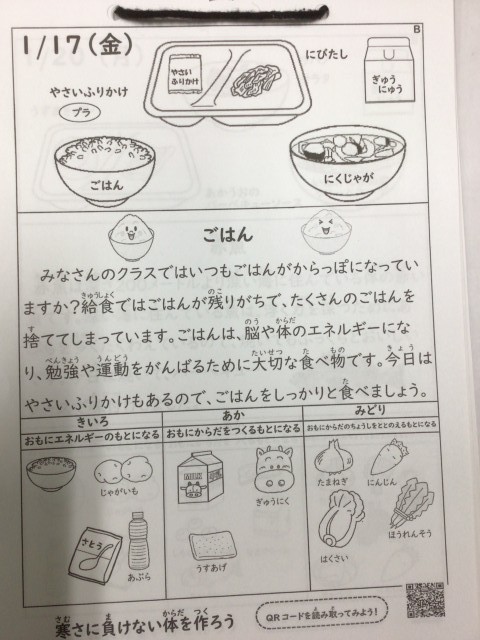 1/17(金)
B
やさいふりかけ
プラ
やさい
ふりかけ
にびたし
ぎゅう
にゅう
ごはん
にくじゃが
ごはん
みなさんのクラスではいつもごはんがからっぽになってい
ますか?給食ではごはんが残りがちで、たくさんのごはんを
捨ててしまっています。ごはんは、脳や体のエネルギーにな
り、勉強や運動をがんばるために大切な食べ物です。今日は
やさいふりかけもあるので、ごはんをしっかりと食べましょう。
きいろ
あか
みどり
おもにエネルギーのもとになる
おもにからだをつくるもとになる
おもにからだのちょうしをととのえるもとになる
じゃがいも
さとう
あぶら
MILK
ぎゅうにく
うすあげ
たまねぎ
にんじん
はくさい
ほうれんそう
寒さに負けない体を作ろう
QRコードを読み取ってみよう!